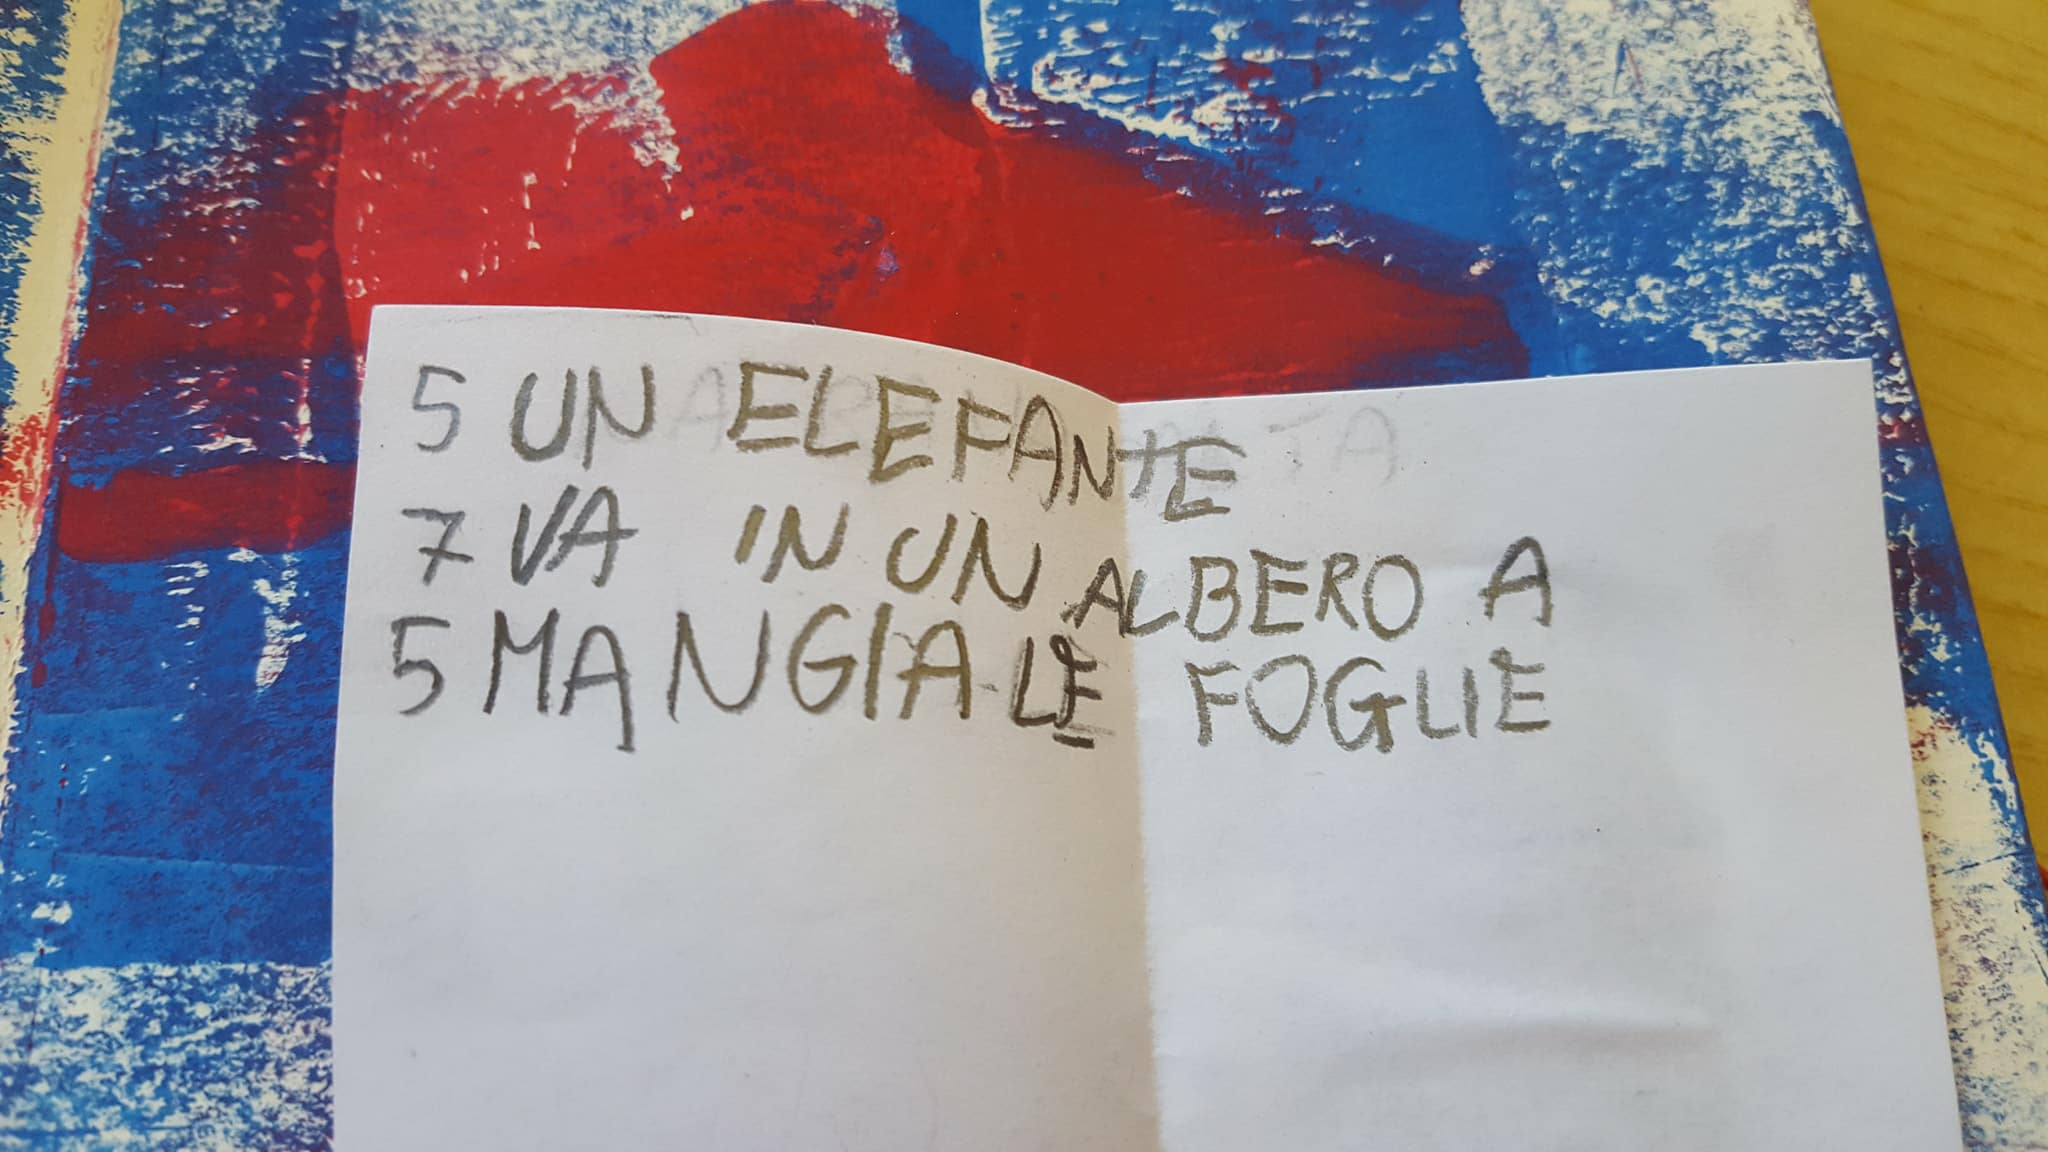 5 UN ELEFANTE
7 VA IN UN ALBERO A
5 MANGIA LE FOGLIE